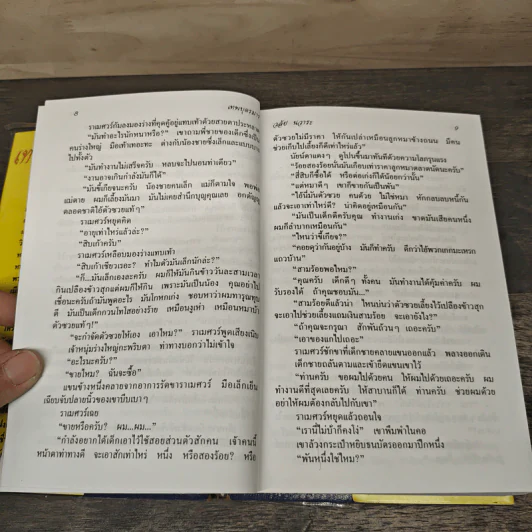 ๘
เทพบุตรมาร
ราเมศวร์ก้มลงมองร่างที่คุดคู้อยู่แทบเท้าด้วยสายตาประหลาด
“มันทำอะไรนักหนาหรือ?” เขาถามพี่ชายของเด็กซึ่งเป็น
คนร่างใหญ่
ไปทั้งตัว
“มันทำงานไม่เสร็จครับ หลบจะไปนอนท่าเดียว”
“งานอาจเกินกำลังมันก็ได้”
“มันขี้เกียจนะครับ น้องชายคนเล็ก แม่ก็ตามใจ
แม่ตาย ผมก็เลี้ยงมันมา มันไม่เคยสำนึกบุญคุณเลย
ตลอดชาติไอ้ตัวซวยแท้ๆ”
ราเมศวร์หยุดคิด
“อายุเท่าไหร่แล้วล่ะ?”
“สิบเก้าครับ”
ราเมศวร์เหลือบมองร่างแทบเท้า
“สิบเก้าเชียวเรอะ? ทำไมตัวมันเล็กนักล่ะ?”
“ก็...มันเล็กเองละครับ ผมก็ให้มันกินข้าววันละสามเวลา
กินเปลืองข้าวสุกแต่ผมก็ให้กิน เพราะมันเป็นน้อง คุณอย่าไป
เชื่อนะครับถ้ามันพูดอะไร มันโกหกเก่ง ชอบหาว่าผมทารุณทุบตี
ตัวซวยแท้ๆ!”
“จะกำจัดตัวซวยให้เอง เอาไหม?” ราเมศวร์พูดเสียงเนิบ
เจ้าหนุ่มร่างใหญ่กะพริบตา ท่าทางบอกว่าไม่เข้าใจ
“อะไรนะครับ?”
“ขายไหม? ฉันจะซื้อ”
แขนข้างหนึ่งลากจากอาการรัดขาราเมศวร์ มือเล็กเย็น
เฉียบจับปลายนิ้วของเขาบีบเบาๆ
ราเมศวร์เฉย
“ขายหรือครับ? ผม...ผม...”
“กำลังอยากได้เด็กเอาไว้ใช้สอยส่วนตัวสักคน เจ้าคนนี้
หน้าตาท่าทางดี จะเอาสักเท่าไหร่ หนึ่ง หรือสองร้อย? หรือ
๙
ตัวซวยไม่มีราคา ให้กันเปล่าเหมือนลูกหมาข้างถนน มีคน
ช่วยเก็บไปเลี้ยงก็ดีเท่าไหร่แล้ว”
นัยน์ตาแดงๆ คู่ไปขึ้นมาทันทีด้วยความโลภรุนแรง
“ร้อยสองร้อยนั่นมันเกือบเท่าราคาลูกหมาตลาดนัดนะครับ”
“สี่สิบก็ซื้อได้ หรือต่อเก่งก็ได้น้อยกว่านั้น”
“แต่หมาดีๆ เขาก็ขายกันเป็นพัน”
“ไอ้นี่มันตัวซวย คนด้วย ไม่ใช่หมา
แล้วจะเอาเท่าไหร่ดี? น่าคิดอยู่เหมือนกัน”
“มันเป็นเด็กดีครับคุณ ทำงานเก่ง ขาดมันเสียคนหนึ่ง
ผมก็ลำบากเหมือนกัน”
“ไหนว่าขี้เกียจ?”
“คอยดุว่ากันอยู่บ้าง มันก็ทำครับ ดีกว่าไอ้พวกเกเร
แถวบ้าน”
“สามร้อยพอไหม?”
“คุณครับ เด็กดีๆ ทั้งคน มันทำงานได้คุ้มค่าครับ ผม
รับรองได้ ถ้าคุณชอบมัน...”
“สามร้อยดีแล้วน่า ไหนบ่นว่าตัวซวยเลี้ยงไว้เปลืองข้าวสุก
จะเอาไปช่วยเลี้ยงแถมเงินสามร้อย จะเอายังไง?”
“ถ้าคุณจะกรุณา สักพันถ้วนๆ เถอะครับ”
“เอาของแกไปเถอะ”
ราเมศวร์ชักขาที่เด็กชายคลายแขนออกแล้ว พลางออกเดิน
เด็กชายถลันตามและเข้ายึดแขนเขาไว้
“ท่านครับ ขอผมไปด้วยคน ให้ผมไปด้วยเถอะครับ ผม
ทำงานดีที่สุดเลยครับ ให้สาบานก็ได้ ท่านครับ ช่วยผมด้วย
อย่าให้ผมต้องกลับไปกับเขา”
ราเมศวร์หยุดแล้วถอนใจ
“เรานี่ไม่บ้าก็คงโง่” เขาพึมพำในคอ
เขาล้วงกระเป๋าหยิบธนบัตรออกมาปึกหนึ่ง
“พันหนึ่งใช่ไหม?”